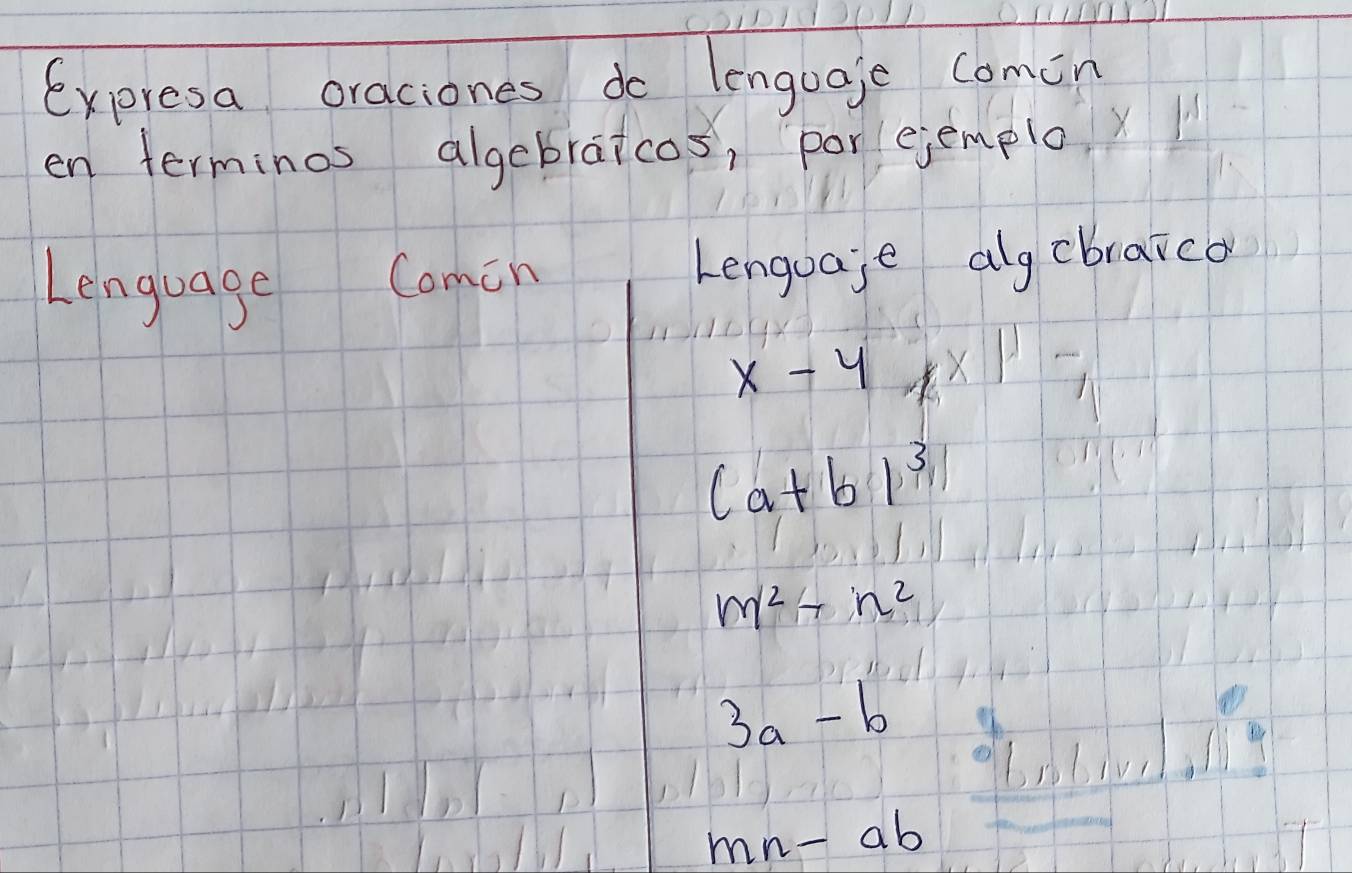 Expresa oraciones de lenguaje común
en terminos algebraícos, por ejemplo
Lenguage Común Lenguaje algebraíco
x - 4
(a+b)³
m² - n²
3a - b
mn - ab